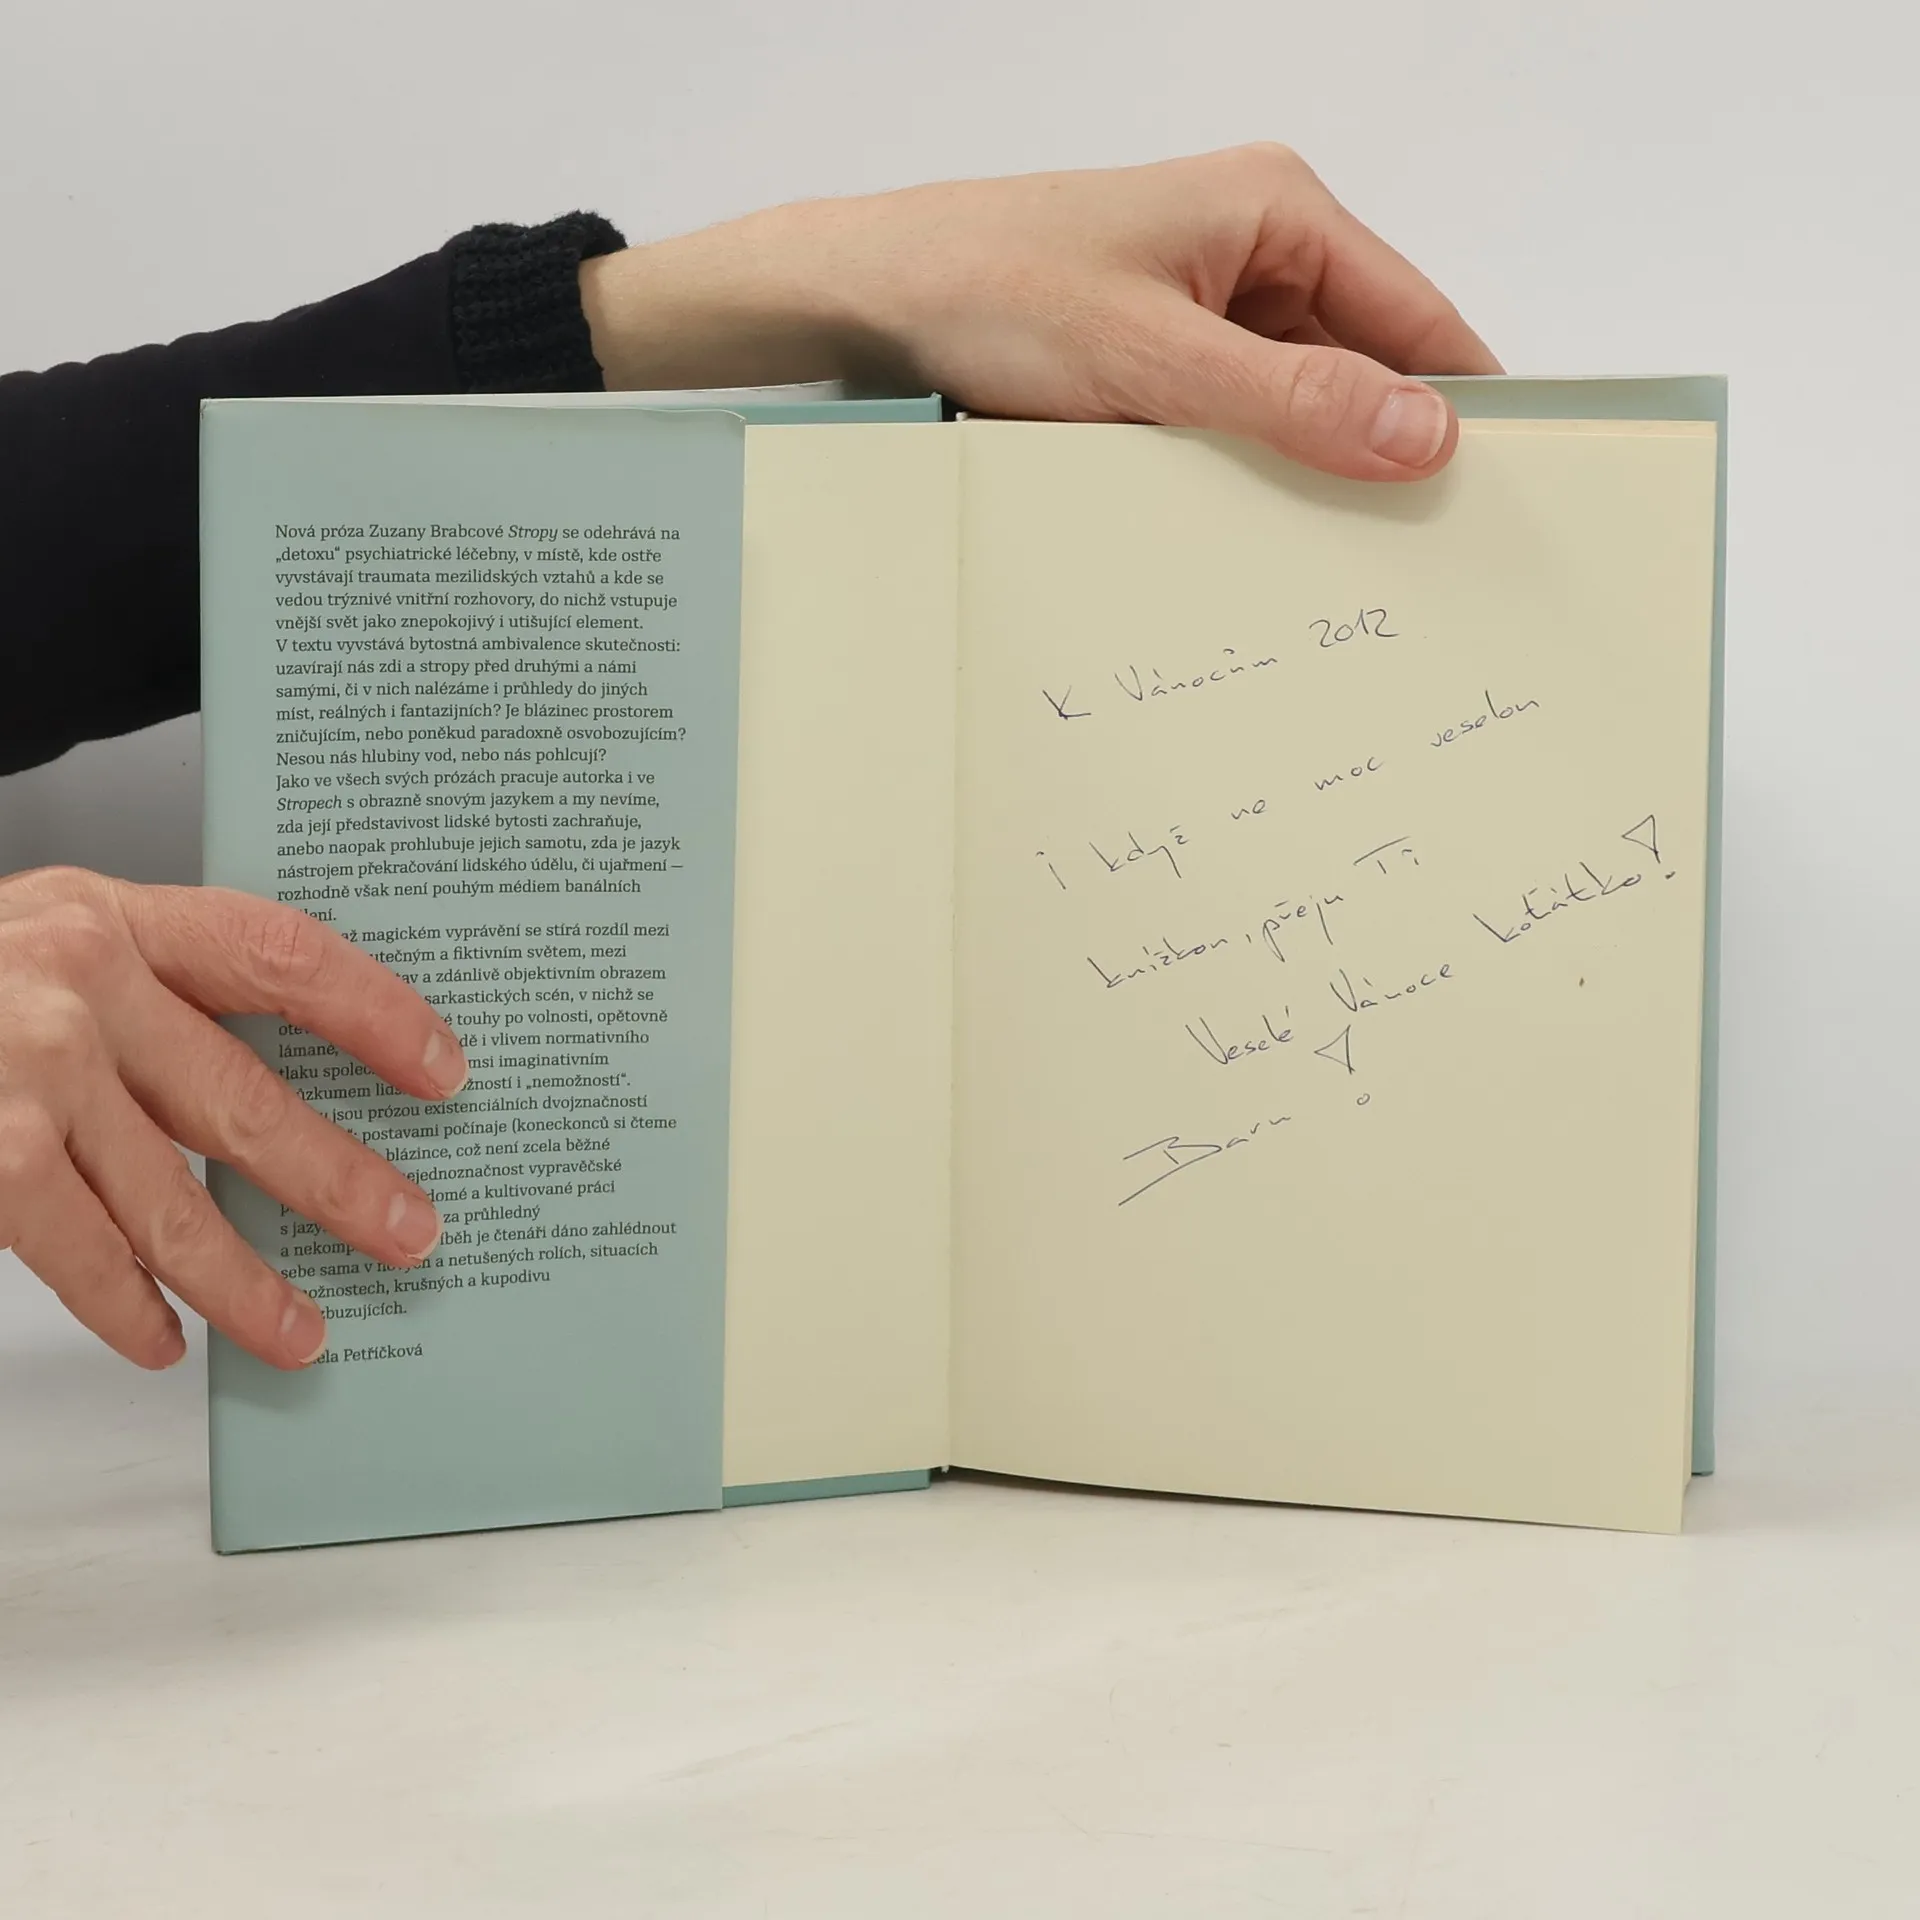 Nová próza Zuzany Brabcové Stropy se odehrává na
„detoxu“ psychiatrické léčebny, v místě, kde ostře
vyvstávají traumata mezilidských vztahů a kde se
vedou trýznivé vnitřní rozhovory, do nichž vstupuje
vnější svět jako znepokojivý i utišující element.
V textu vyvstává bytostná ambivalence skutečnosti:
uzavírají nás zdi a stropy před druhými a námi
samými, či v nich nalézáme i průhledy do jiných
míst, reálných i fantazijních? Je blázinec prostorem
zničujícím, nebo poněkud paradoxně osvobozujícím?
Nesou nás hlubiny vod, nebo nás pohlcují?
Jako ve všech svých prózách pracuje autorka i ve
Stropech s obrazně snovým jazykem a my nevíme,
zda její představivost lidské bytosti zachraňuje,
anebo naopak prohlubuje jejich samotu, zda je jazyk
nástrojem překračování lidského údělu, či ujařmení —
rozhodně však není pouhým médiem banálních
až magickém vyprávění se stírá rozdíl mezi
a fiktivním světem, mezi
a zdánlivě objektivním obrazem
sarkastických scén, v nichž se
touhy po volnosti, opětovně
lámané, i vlivem normativního
tlaku imaginativním
i „nemožností“.
jsou prózou existenciálních dvojznačností
postavami počínaje (koneckonců si čteme
blázince, což není zcela běžné
vypravěčské
a kultivované práci
s za průhledný
a je čtenáři dáno zahlédnout
sebe sama v a netušených rolích, situacích
krušných a kupodivu
Petříčková
K Vánocům 2012
i když ne moc veselou
knížkou, přeju Ti
Veselé Vánoce koťátko!